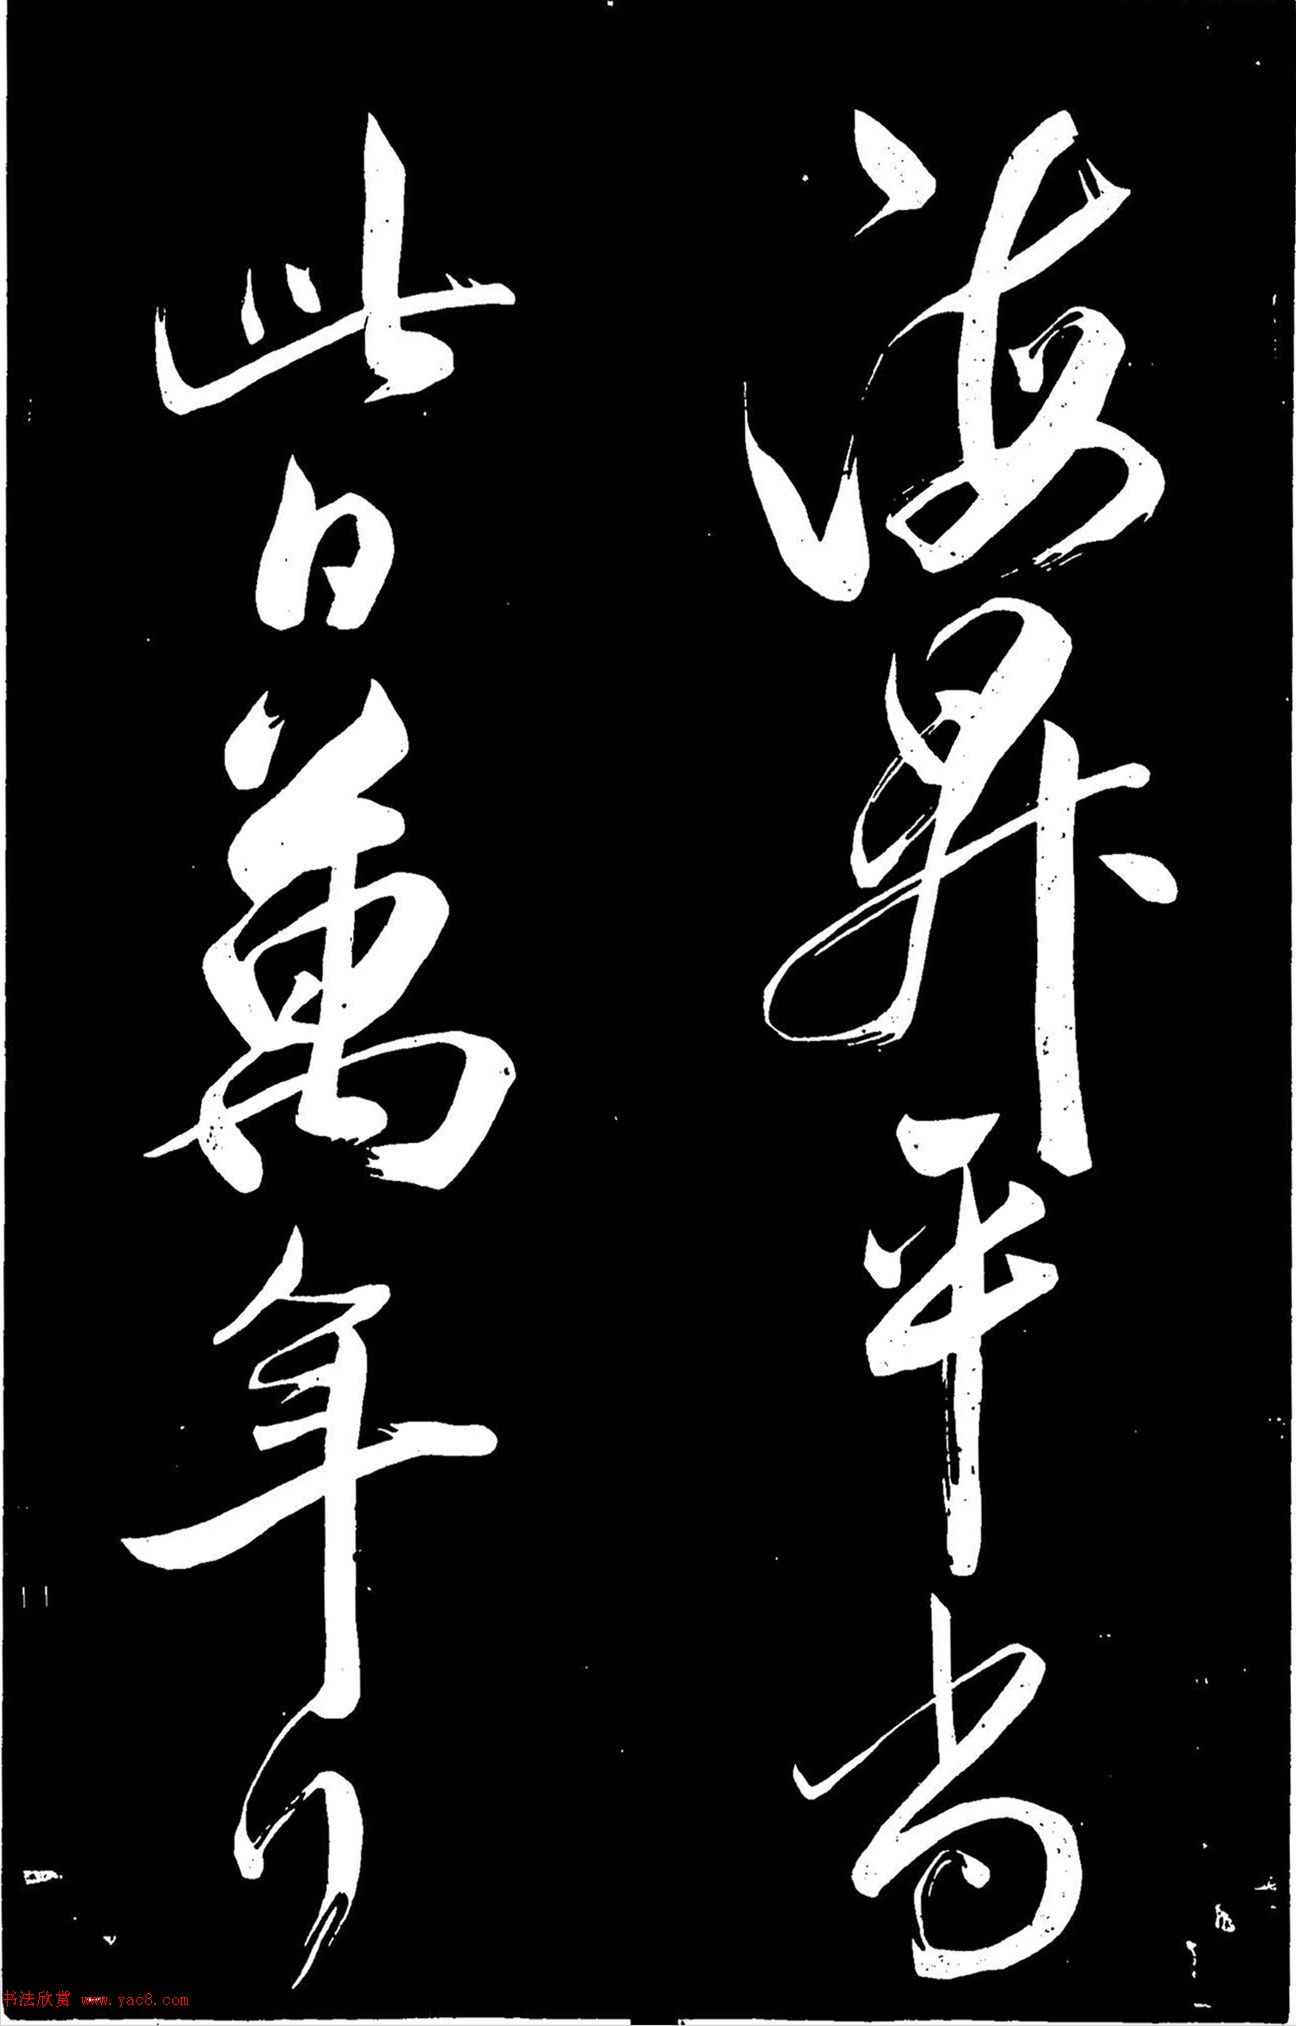 海昇平當
此日萬年
书法欣赏 www.yac8.com